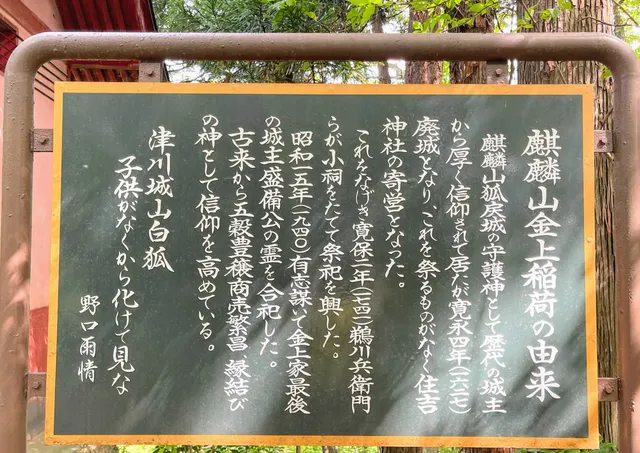 麒麟山金上稲荷の由来
麒麟山狐戻城の守護神として歴代の城主
から厚く信仰されて居たが寛永四年(一六二七)
廃城となり、これを祭るものがなく住吉
神社の寄宮となった。
これをなげき寛保二年(一七四二)鵜川兵衛門
らが小祠をたて祭祀を興した。
昭和一五年(一九四〇)有志謀いて金上家最後
の城主盛備公の霊を合祀した。
古来から五穀豊穣商売繁昌縁結び
の神として信仰を高めている。
津川城山白狐
子供がなくから化けて見な
野口雨情